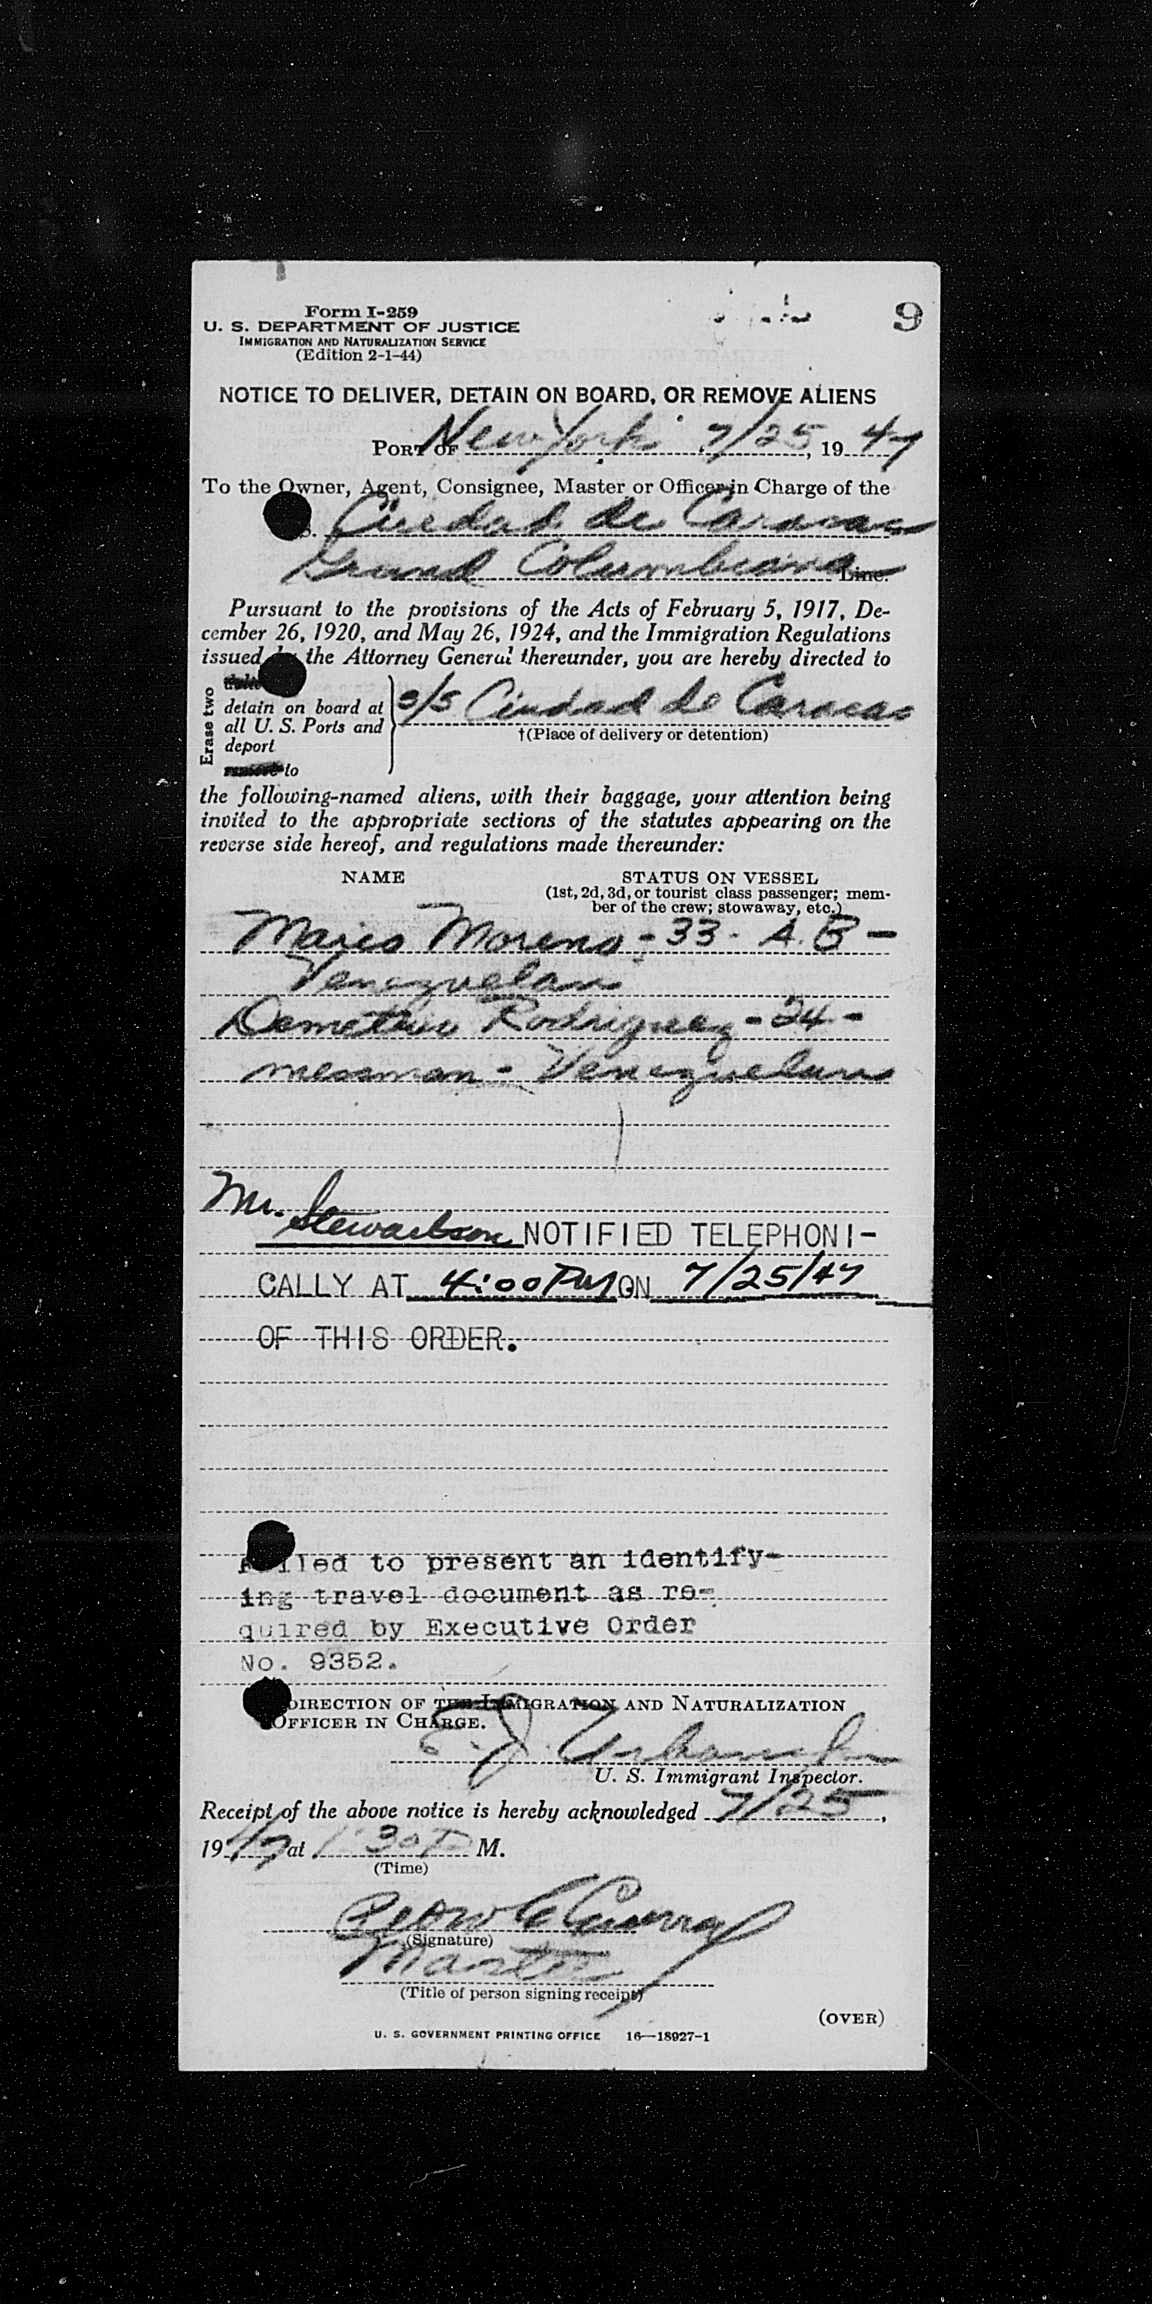 Form I-259
U. S. DEPARTMENT OF JUSTICE
IMMIGRATION AND NATURALIZATION SERVICE
(Edition 2-1-44)
9
NOTICE TO DELIVER, DETAIN ON BOARD, OR REMOVE ALIENS
PORT OF New York, 7/25, 1947
To the Owner, Agent, Consignee, Master or Officer in Charge of the
S. Ciudad de Caracas
Grand Columbiana Line.
Pursuant to the provisions of the Acts of February 5, 1917, De-
cember 26, 1920, and May 26, 1924, and the Immigration Regulations
issued by the Attorney General thereunder, you are hereby directed to
Erase two
detain on board at
all U. S. Ports and
deport
remove to
s/s Ciudad de Caracas
†(Place of delivery or detention)
the following-named aliens, with their baggage, your attention being
invited to the appropriate sections of the statutes appearing on the
reverse side hereof, and regulations made thereunder:
NAME STATUS ON VESSEL
(1st, 2d, 3d, or tourist class passenger; mem-
ber of the crew; stowaway, etc.)
Moreno - 33 - A. B -
Venezuelan
Demetrio Rodriguez - 24 -
messman - Venezuelan
Mr. Stewartson NOTIFIED TELEPHONI-
CALLY AT 4:00 PM ON 7/25/47
OF THIS ORDER.
Failed to present an identify-
ing travel document as re-
quired by Executive Order
No. 9352.
DIRECTION OF THE IMMIGRATION AND NATURALIZATION
OFFICER IN CHARGE.
E. J.
U. S. Immigrant Inspector.
Receipt of the above notice is hereby acknowledged 7/25,
1947 at 1:30 P M.
(Time)
(Signature)
Master
(Title of person signing receipt)
(OVER)
U. S. GOVERNMENT PRINTING OFFICE 16—18927-1